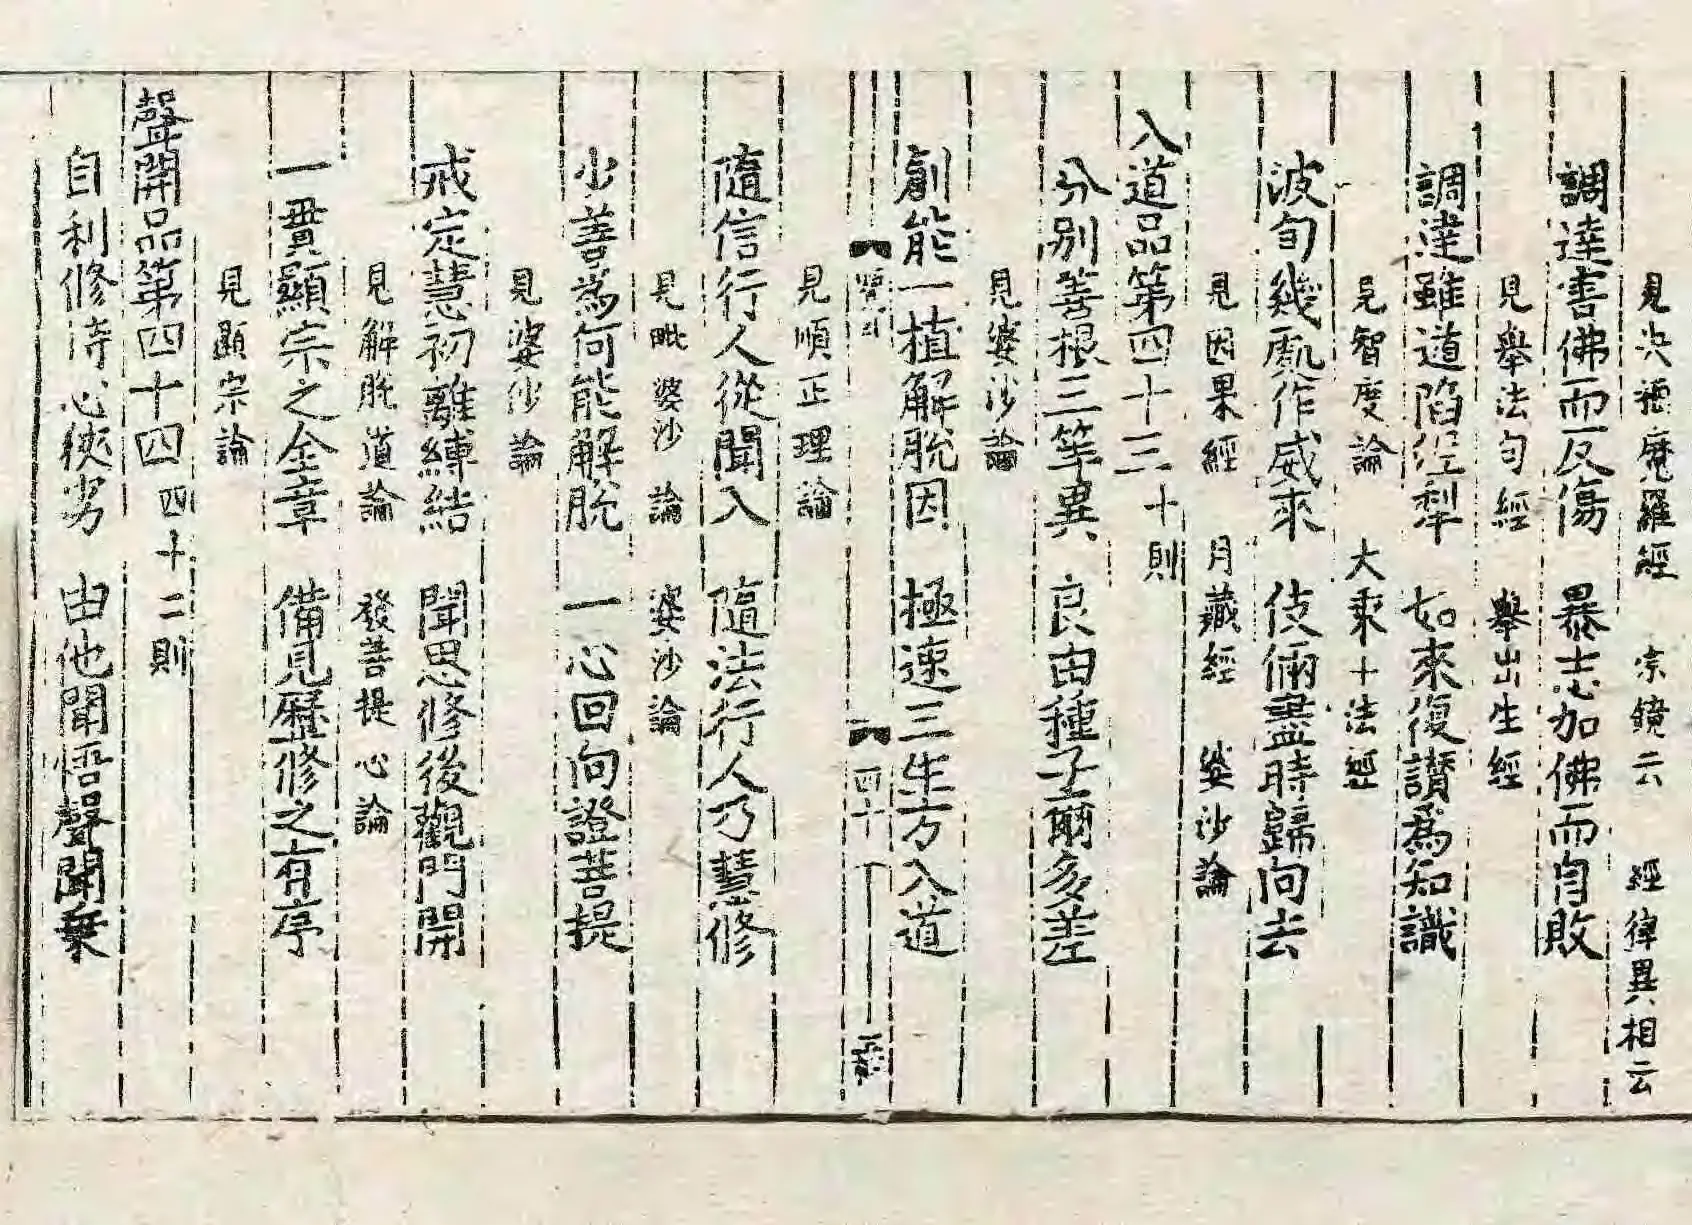 見決 魔羅經 宗鏡云 經律異相云
調達害佛而反傷 暴志加佛而自敗
見舉法句經 舉出生經
調達雖道陷泥犁 如來復讃為知識
見智度論 大乘十法經
波旬幾處作威來 伎倆盡時歸向去
見因果經 月藏經 婆沙論
入道品第四十三 十則
分別善根三等異 良由種子爾多差
見婆沙論
創能一植解脫因 極速三生方入道
四十
見順正理論
隨信行人從聞入 隨法行人乃慧修
見毗婆沙論 婆沙論
少善為何能解脫 一心回向證菩提
見婆沙論
戒定慧初離縛結 聞思修後觀門開
見解脫道論 發菩提心論
一貫顯宗之金章 備見歷修之有序
見顯宗論
聲聞品第四十四 四十二則
自利修持心狹劣 由他聞悟聲聞乗